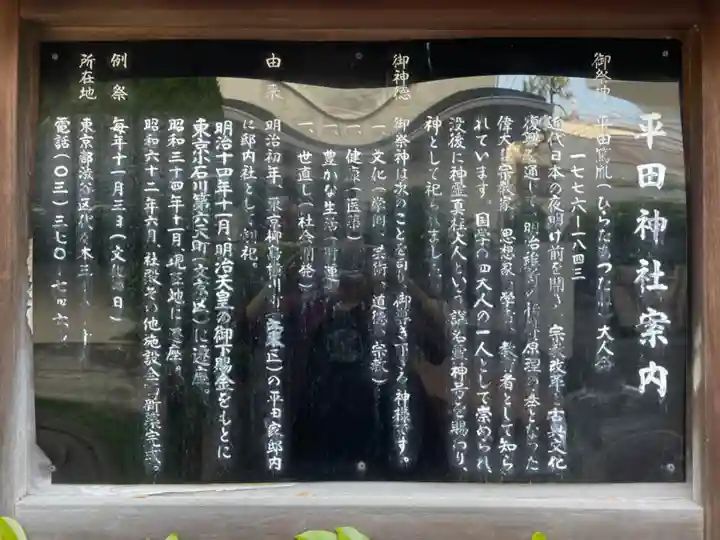 平田神社案内
御祭神 平田篤胤(ひらたあつたね)大人命
一七七六〜一八四三
近代日本の夜明け前を開き、宗教改革と古典文化
復興を通じて、明治維新の指導原理の基となった
偉大な宗教家、思想家、学者、教育者として知ら
れています。国学の四大人の一人として崇められ、
没後に神霊真柱大人という諡名と神号を賜わり、
神として祀られました。
御神徳 御祭神は次のことを司り、御導き下さる神様です。
一、文化(学問、芸術、道徳、宗教)
一、健康(医薬)
一、豊かな生活(開運)
一、世直し(社会開発)
由来 明治初年、東京柳島横川町(区)の平田家邸内
に邸内社として創祀。
明治十四年十一月、明治天皇の御下賜金をもとに
東京小石川第六天町(文京区)に遷座。
昭和三十四年十一月、現在地に遷座。
昭和六十二年六月、社殿その他施設全て新築完成。
例祭 毎年十一月三日(文化の日)
所在地 東京都渋谷区代々木三
電話(〇三)三七〇-七四六